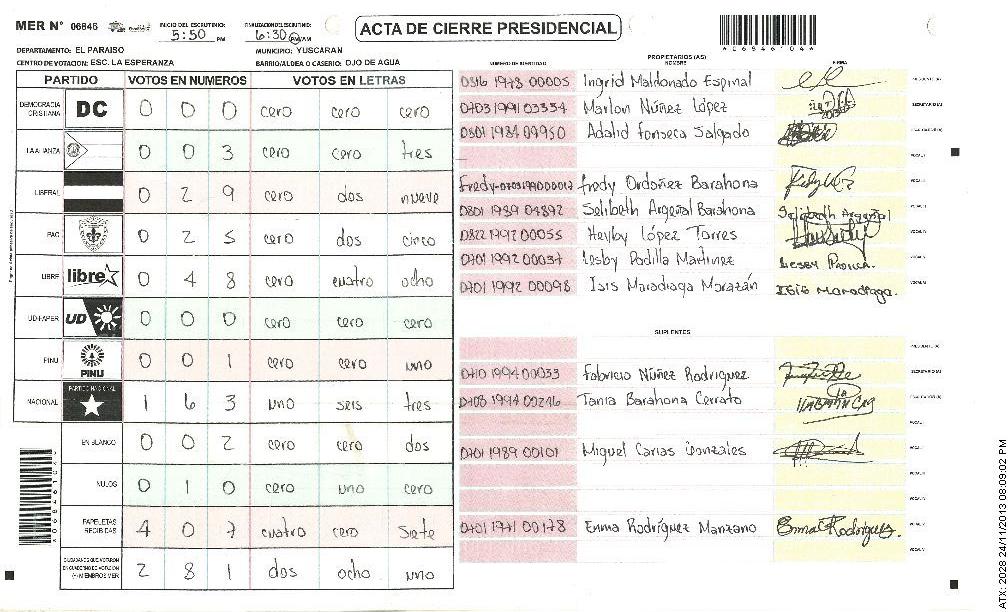 MER N° 06846
INICIO DEL ESCRUTINIO: 5:50 PM
FINALIZACION ESCRUTINIO: 6:30 PM/AM
ACTA DE CIERRE PRESIDENCIAL
DEPARTAMENTO: EL PARAISO
MUNICIPIO: YUSCARAN
CENTRO DE VOTACION: ESC. LA ESPERANZA
BARRIO/ALDEA O CASERIO: OJO DE AGUA
PARTIDO VOTOS EN NUMEROS VOTOS EN LETRAS
DEMOCRACIA CRISTIANA DC 0 0 0 cero cero cero
LA ALIANZA 0 0 3 cero cero tres
LIBERAL 0 2 9 cero dos nueve
PAC 0 2 5 cero dos cinco
LIBRE libre 0 4 8 cero cuatro ocho
UD-FAPER UD 0 0 0 cero cero cero
PINU PINU 0 0 1 cero cero uno
NACIONAL PARTIDO NACIONAL 1 6 3 uno seis tres
EN BLANCO 0 0 2 cero cero dos
NULOS 0 1 0 cero uno cero
PAPELETAS RECIBIDAS 4 0 7 cuatro cero siete
CIUDADANOS QUE VOTARON EN CUADERNO DE VOTACION (+) MIEMBROS MER 2 8 1 dos ocho uno
PROPIETARIOS (AS)
NUMERO DE IDENTIDAD NOMBRE FIRMA
0316 1973 00005 Ingrid Maldonado Espinal PRESIDENTE (A)
0703 1991 03354 Marlon Núñez López SECRETARIO (A)
0801 1984 09950 Adalid Fonseca Salgado
VOCAL I
Fredy Ordoñez Barahona
0801 1989 04892 Selibeth Argeñal Barahona Selibeth Argeñal
0822 1992 00055 Heylby López Torres
0701 1992 00037 Lesby Padilla Martinez Lesby Padilla.
0701 1992 00098 Isis Maradiaga Morazán Isis Maradiaga.
SUPLENTES
PRESIDENTE (A)
0710 1994 00033 Fabricio Núñez Rodriguez SECRETARIO (A)
0708 1994 00246 Tania Barahona Cerrato
0701 1989 00101 Miguel Carias Gonzales
0701 1971 00178 Enma Rodríguez Manzano Enma Rodríguez.
ATX: 2028 24/11/2013 08:09:02 PM